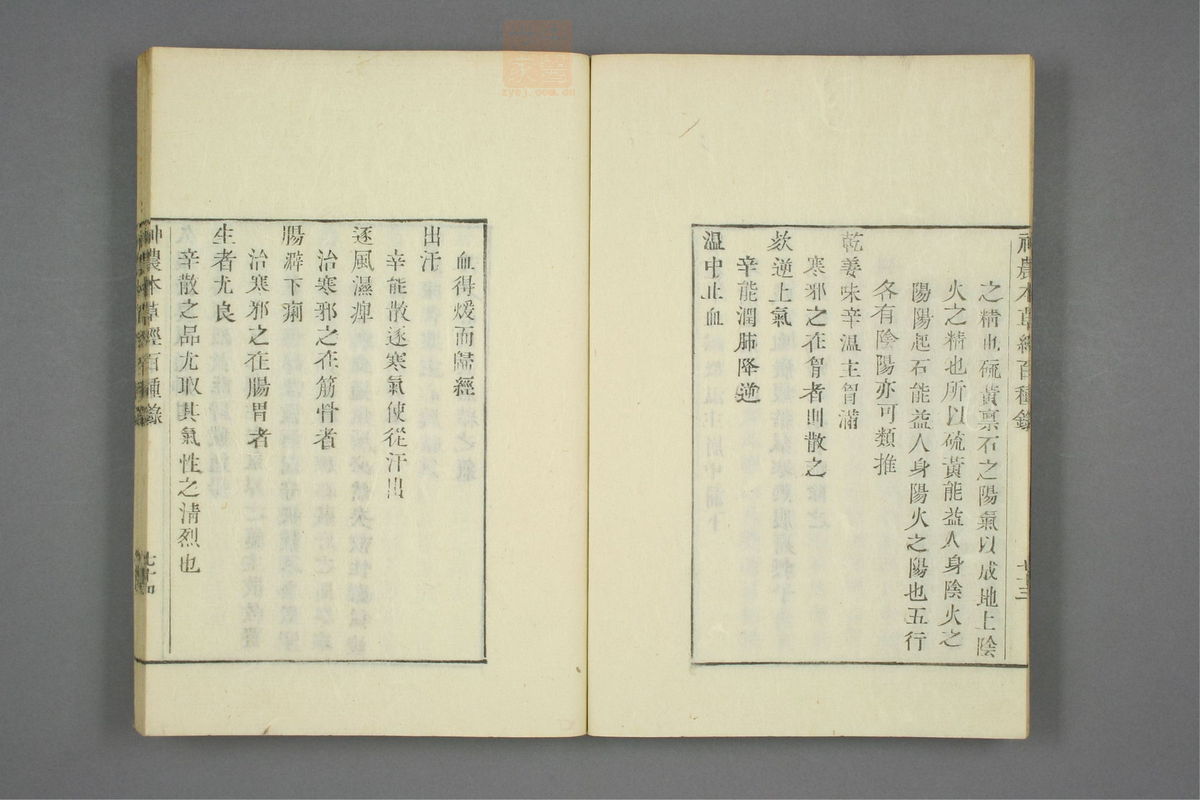 神農本草經百種錄
七十三
之精也硫黃稟石之陽氣以成地上陰
火之精也所以硫黃能益人身陰火之
陽陽起石能益人身陽火之陽也五行
各有陰陽亦可類推
乾姜味辛溫主胷滿
寒邪之在胷者則散之
欬逆上氣
辛能潤肺降逆
溫中止血
血得煖而歸經
出汗
辛能散逐寒氣使從汗出
逐風濕痺
治寒邪之在筋骨者
腸澼下痢
治寒邪之在腸胃者
生者尤良
辛散之品尤取其氣性之清烈也
神農本草經百種錄
七十四
zyej.com.cn